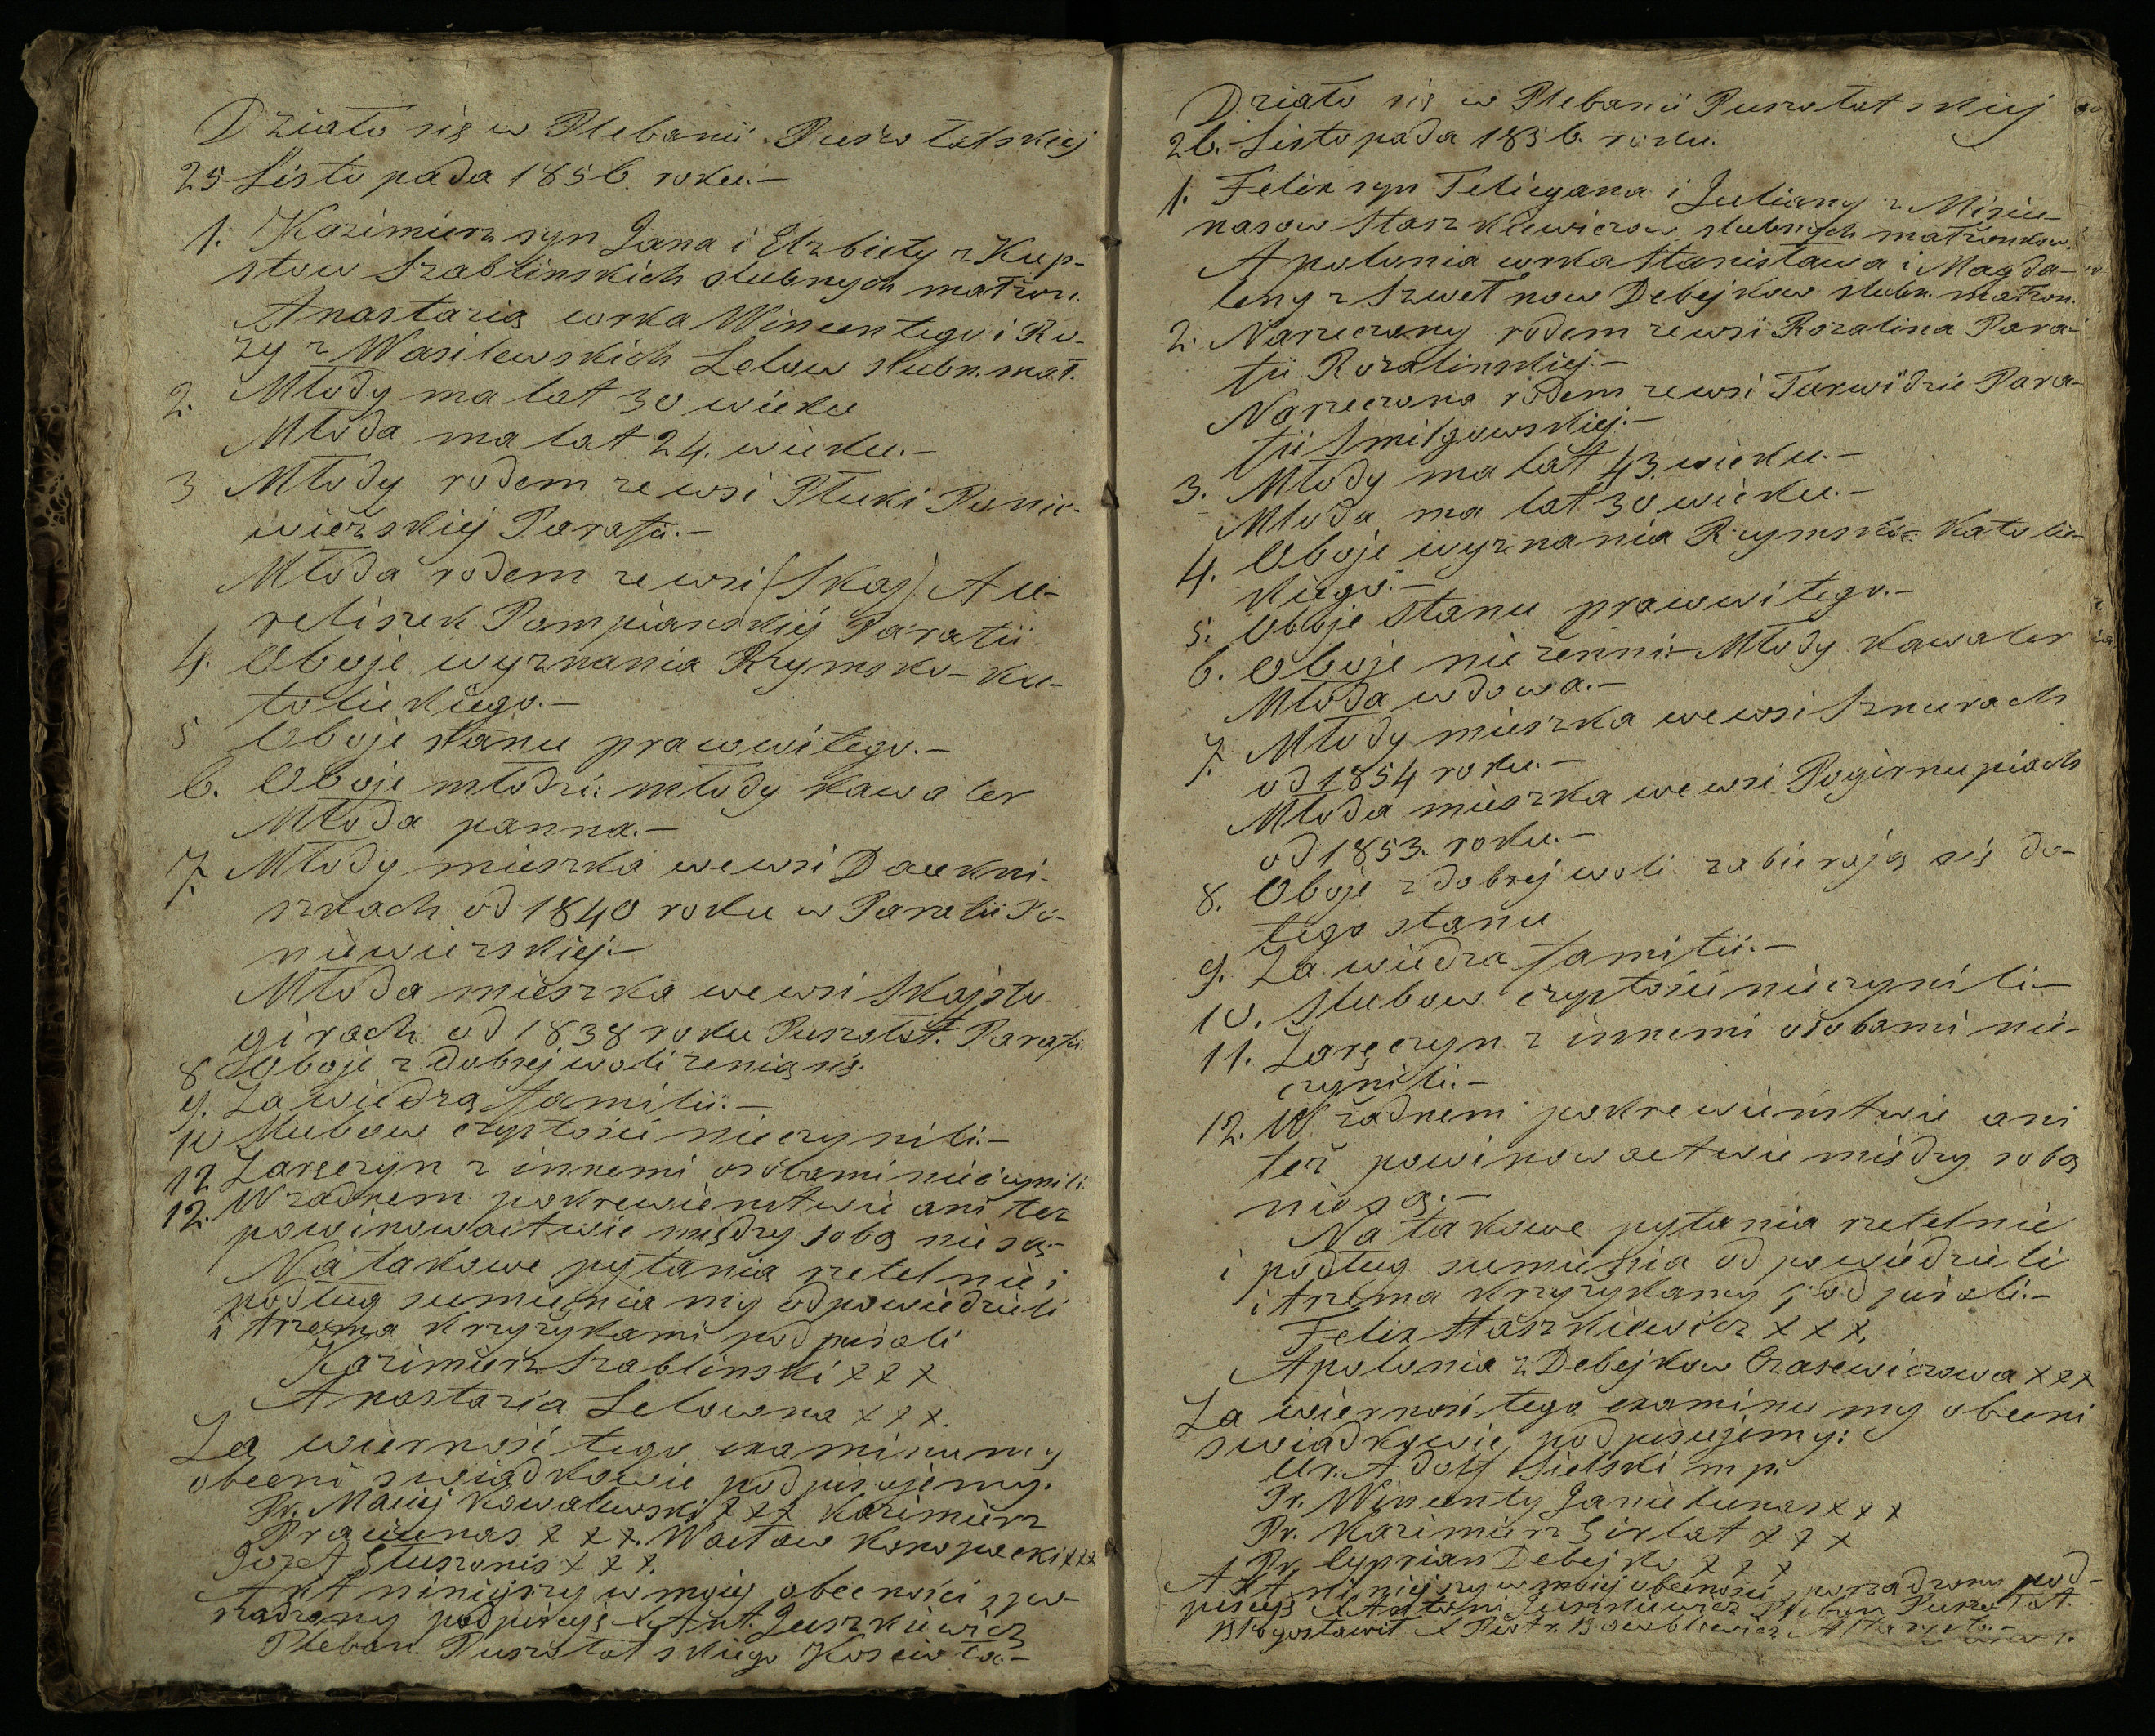 Działo się w Plebanii Puszołatskiej
25 Listopada 1856. roku.—
1. Kazimierz syn Jana i Elzbiety z Kup-
stow Szablinskich slubnych małżon.
Anastazia corka Wincentego i Ro-
zy z Wasilewskich Lelow slubn. mał.
2. Młody ma lat 30 wieku
Młoda ma lat 24. wieku.—
3 Młody rodem ze wsi Płuki Ponie-
wieżskiej Parafii.—
Młoda rodem ze wsi (Skaj) Au-
reliszek Pompianskiej Parafii
4. Oboje wyznania Rzymsko-ka-
tolickiego.—
5 Oboje stanu prawowitego.—
6. Oboje młodzi: młody kawaler
Młoda panna.—
7. Młody mieszka we wsi Daukni-
szkach od 1840 roku w Parafii Po-
niewierskiej.—
Młoda mieszka we wsi Skajsto
girach od 1838 roku Puszołat. Parafii.
8 Oboje z dobrej woli zenią się.
9. Za wiedzą familii.—
10 Slubow czystości nieczynili.—
12 Zaręczyn z innemi osobami nieczynili.
12. W zadnem pokrewienstwie ani tez
powinowactwie między sobą nie są.—
Na takowe pytania rzetelnie i
podług sumienia my odpowiedzieli
i trzema krzyzykami podpisali
Kazimierz Szablinski x x x
Anastazia Lelowna x x x.
Za wiernosć tego examinu my
obecni swiadkowie podpisujemy.
Pr. Maciej Kowalewski x x x Kazimierz
Praciunas x x x. Wacław Konopacki x x x
Jozef Sluszonis x x x.
Akt ninięjszy w moiej obecności spo-
rządzony podpisuję X Ant. Juszkiewicz
Pleban Puszołatskiego Koscioła—
Działo się w Plebanii Puszołatskiej
26. Listopada 1856. roku.
1. Felix syn Felicyana i Julianny z Misiu-
nasow Staszkiewiczow slubnych małżonkow.
Apolonia corka Stanisława i Magda-
leny z Szwetnow Debejkow slubn. małżon.
2. Narzeczony rodem ze wsi Rozalina Para-
fii Rozalinskiej.—
Narzeczona rodem ze wsi Turwidzie Para-
fii Smilgowskiej.—
3. Młody ma lat 43 wieku.—
Młoda ma lat 30 wieku.—
4. Oboje wyznania Rzymsko-Katolic-
kiego.—
5. Oboje stanu prawowitego.—
6. Oboje niezenni.— Młody Kawaler
Młoda wdowa.—
7. Młody mieszka we wsi Sznurach
od 1854 roku.—
Młoda mieszka we wsi Pogirnupiach
od 1853. roku.—
8. Oboje z dobrej woli zabierają się do-
tego stanu
9. Za wiedza familii.—
10. Slubow czystości nieczynili—
11. Zaręczyn z innemi osobami nie-
czynili.—
12. W zadnem pokrewieństwie ani
też powinowactwie między sobą
nie są.—
Na takowe pytania rzetelnie
i podług sumienia odpowiedzieli
i trzema krzyzykamy podpisali.—
Felix Staszkiewicz x x x.
Apolonia z Debejkow Czasewiczowa x x x
Za wiernosć tego examinu my obecni
swiadkowie podpisujemy:
Ur. Adolf Bielski m. p.
Pr. Wincenty Janielunas x x x
Pr. Kazimierz Girlat x x x
Pr. Cyprian Debejko x x x
Akt niniejszy w moiej obecności sporządzony pod-
pisuję X Antoni Juszkiewicz Pleban Puszołat.
Błogosławił X Piotr. Altarysta.—